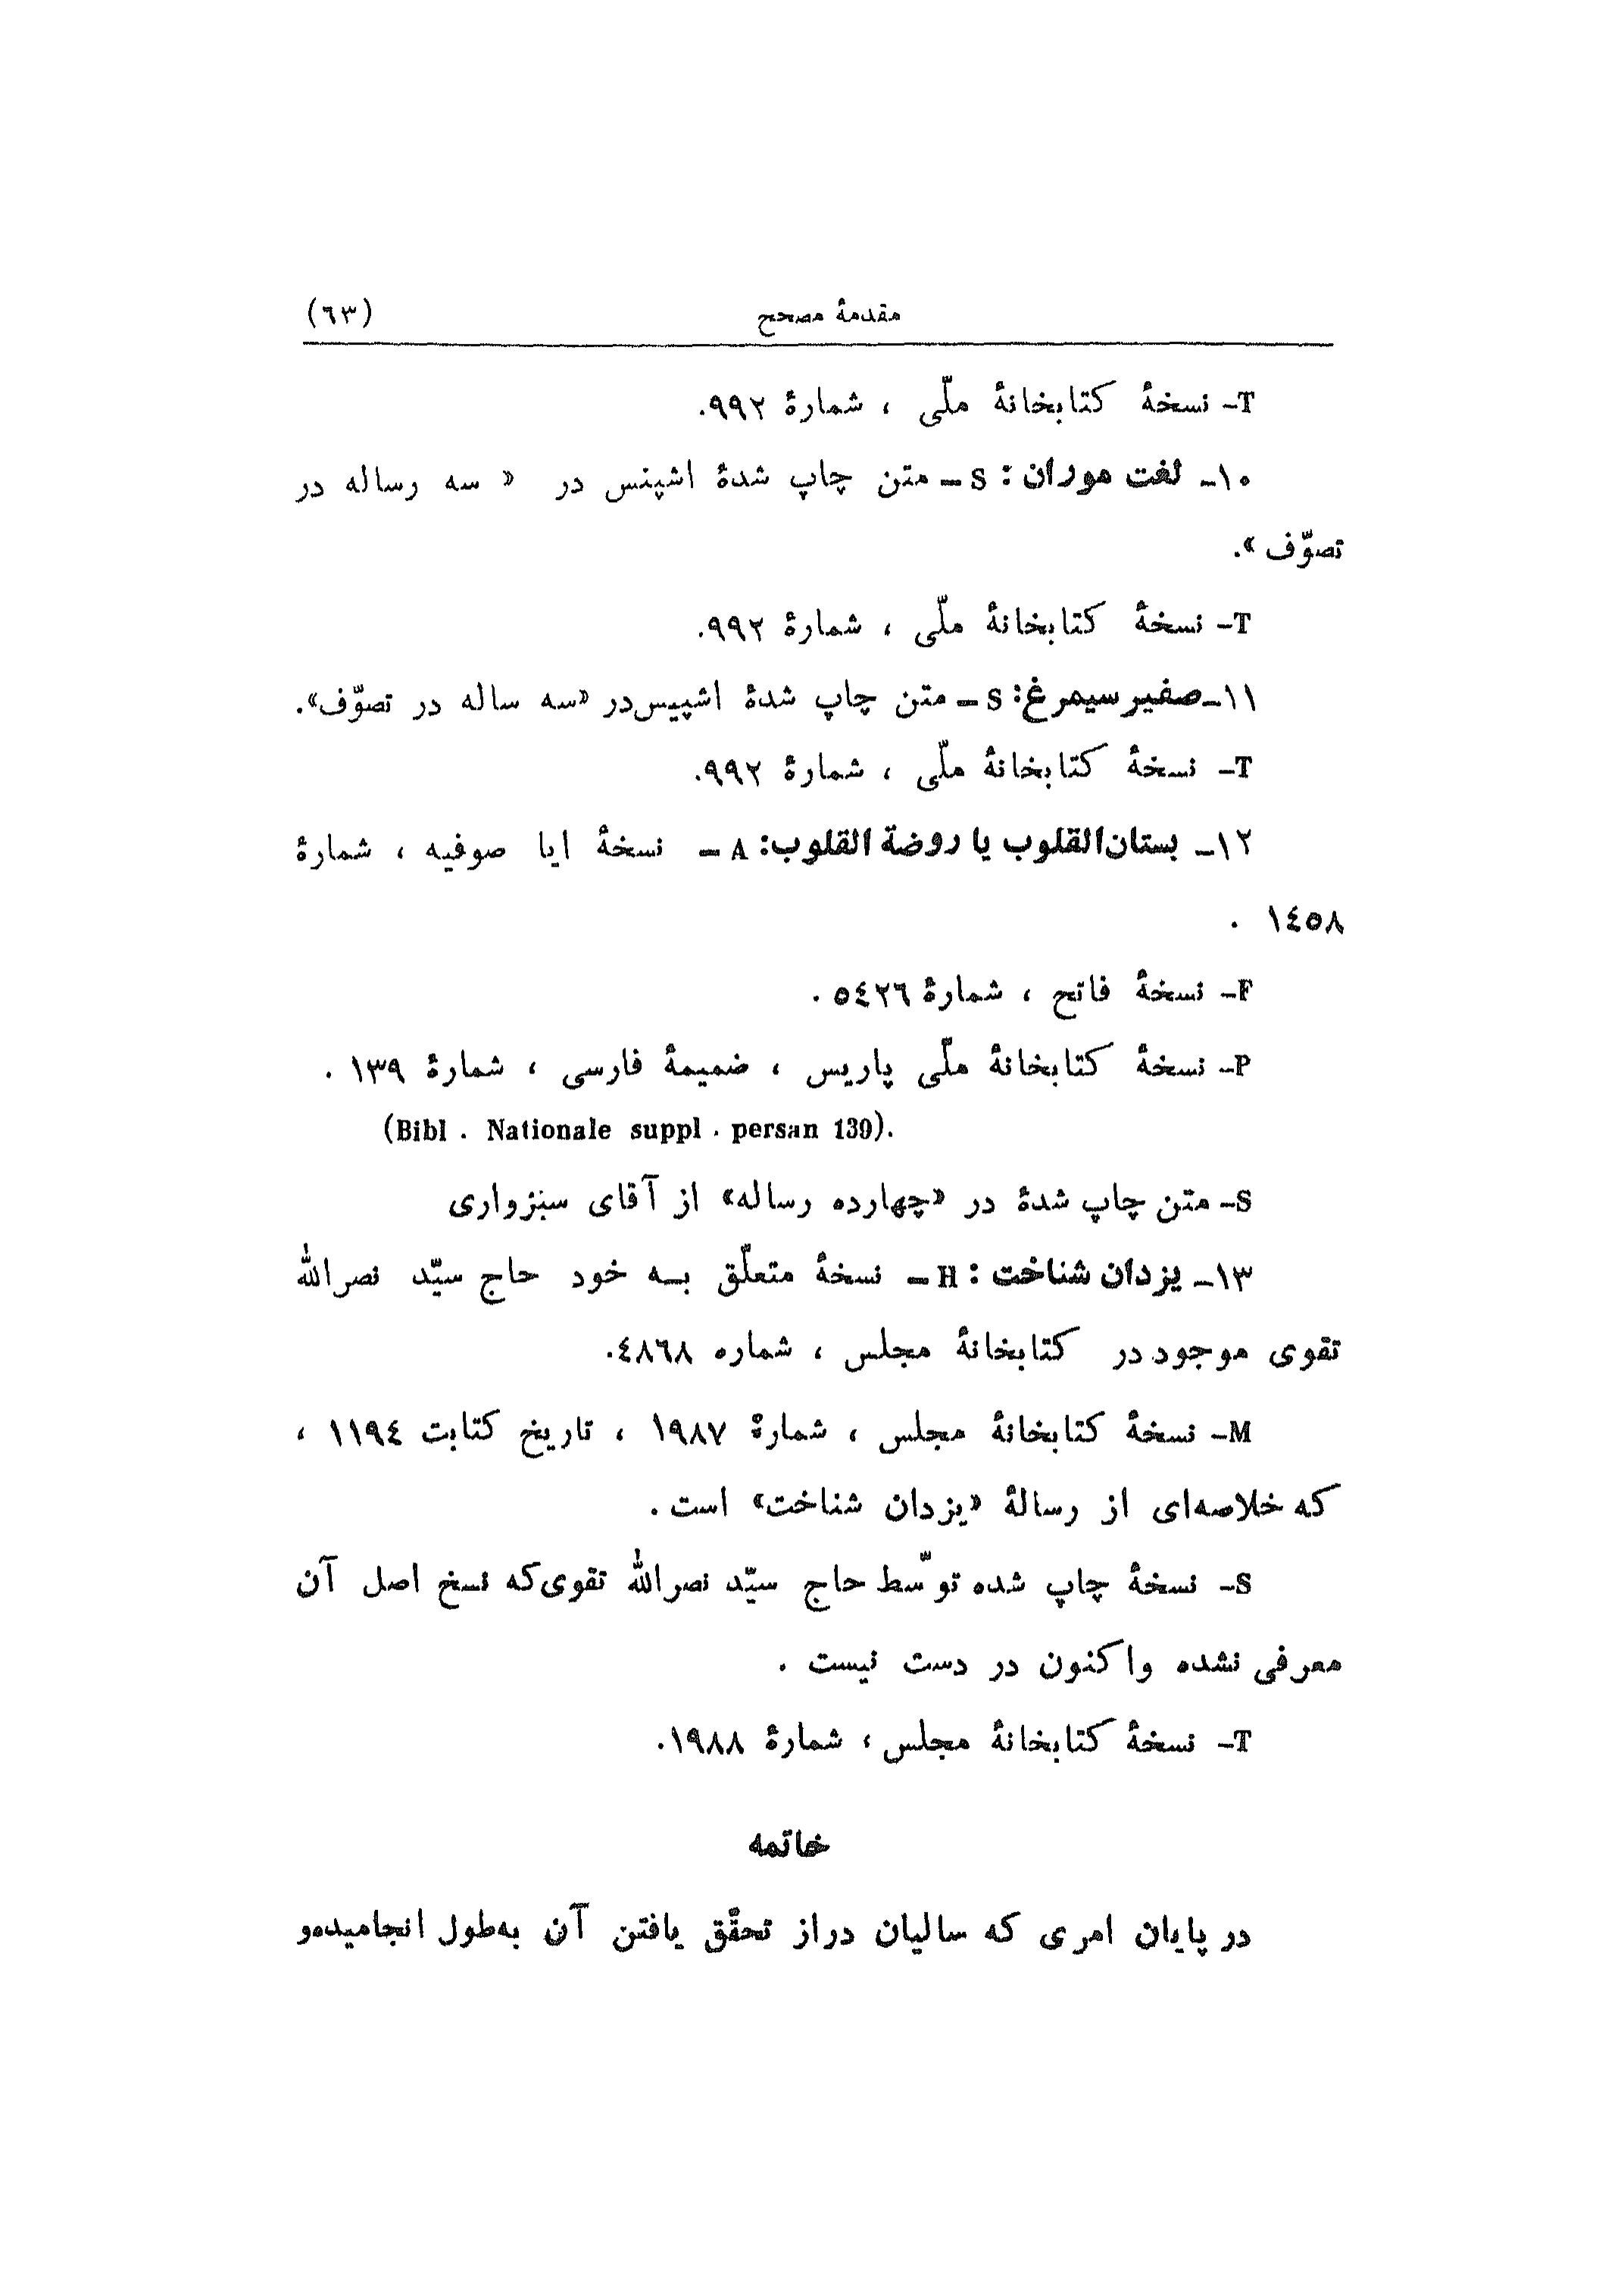 مقدمهٔ مصحح (٦٣)
T- نسخهٔ کتابخانهٔ ملّی ، شمارهٔ ٩٩٢.
١٠- لغت موران : S - متن چاپ شدهٔ اشپنس در « سه رساله در
تصوّف ».
T- نسخهٔ کتابخانهٔ ملّی ، شمارهٔ ٩٩٢.
١١- صفیر سیمرغ: S - متن چاپ شدهٔ اشپیس در «سه ساله در تصوّف».
T- نسخهٔ کتابخانهٔ ملّی ، شمارهٔ ٩٩٢.
١٢- بستان‌القلوب یا روضة القلوب: A - نسخهٔ ایا صوفیه ، شمارهٔ
١٤٥٨ .
F- نسخهٔ فاتح ، شمارهٔ ٥٤٢٦ .
P- نسخهٔ کتابخانهٔ ملّی پاریس ، ضمیمهٔ فارسی ، شمارهٔ ١٣٩ .
(Bibl . Nationale suppl . persan 139).
S- متن چاپ شدهٔ در «چهارده رساله» از آقای سبزواری
١٣- یزدان شناخت : H - نسخهٔ متعلّق بـه خود حاج سیّد نصرالله
تقوی موجود در کتابخانهٔ مجلس ، شماره ٤٨٦٨.
M- نسخهٔ کتابخانهٔ مجلس ، شمارهٔ ١٩٨٧ ، تاریخ کتابت ١١٩٤ ،
که خلاصه‌ای از رسالهٔ «یزدان شناخت» است .
S- نسخهٔ چاپ شده توسّط حاج سیّد نصرالله تقوی که نسخ اصل آن
معرفی نشده واکنون در دست نیست .
T- نسخهٔ کتابخانهٔ مجلس ، شمارهٔ ١٩٨٨.
خاتمه
در پایان امری که سالیان دراز تحقّق یافتن آن به‌طول انجامیده‌و